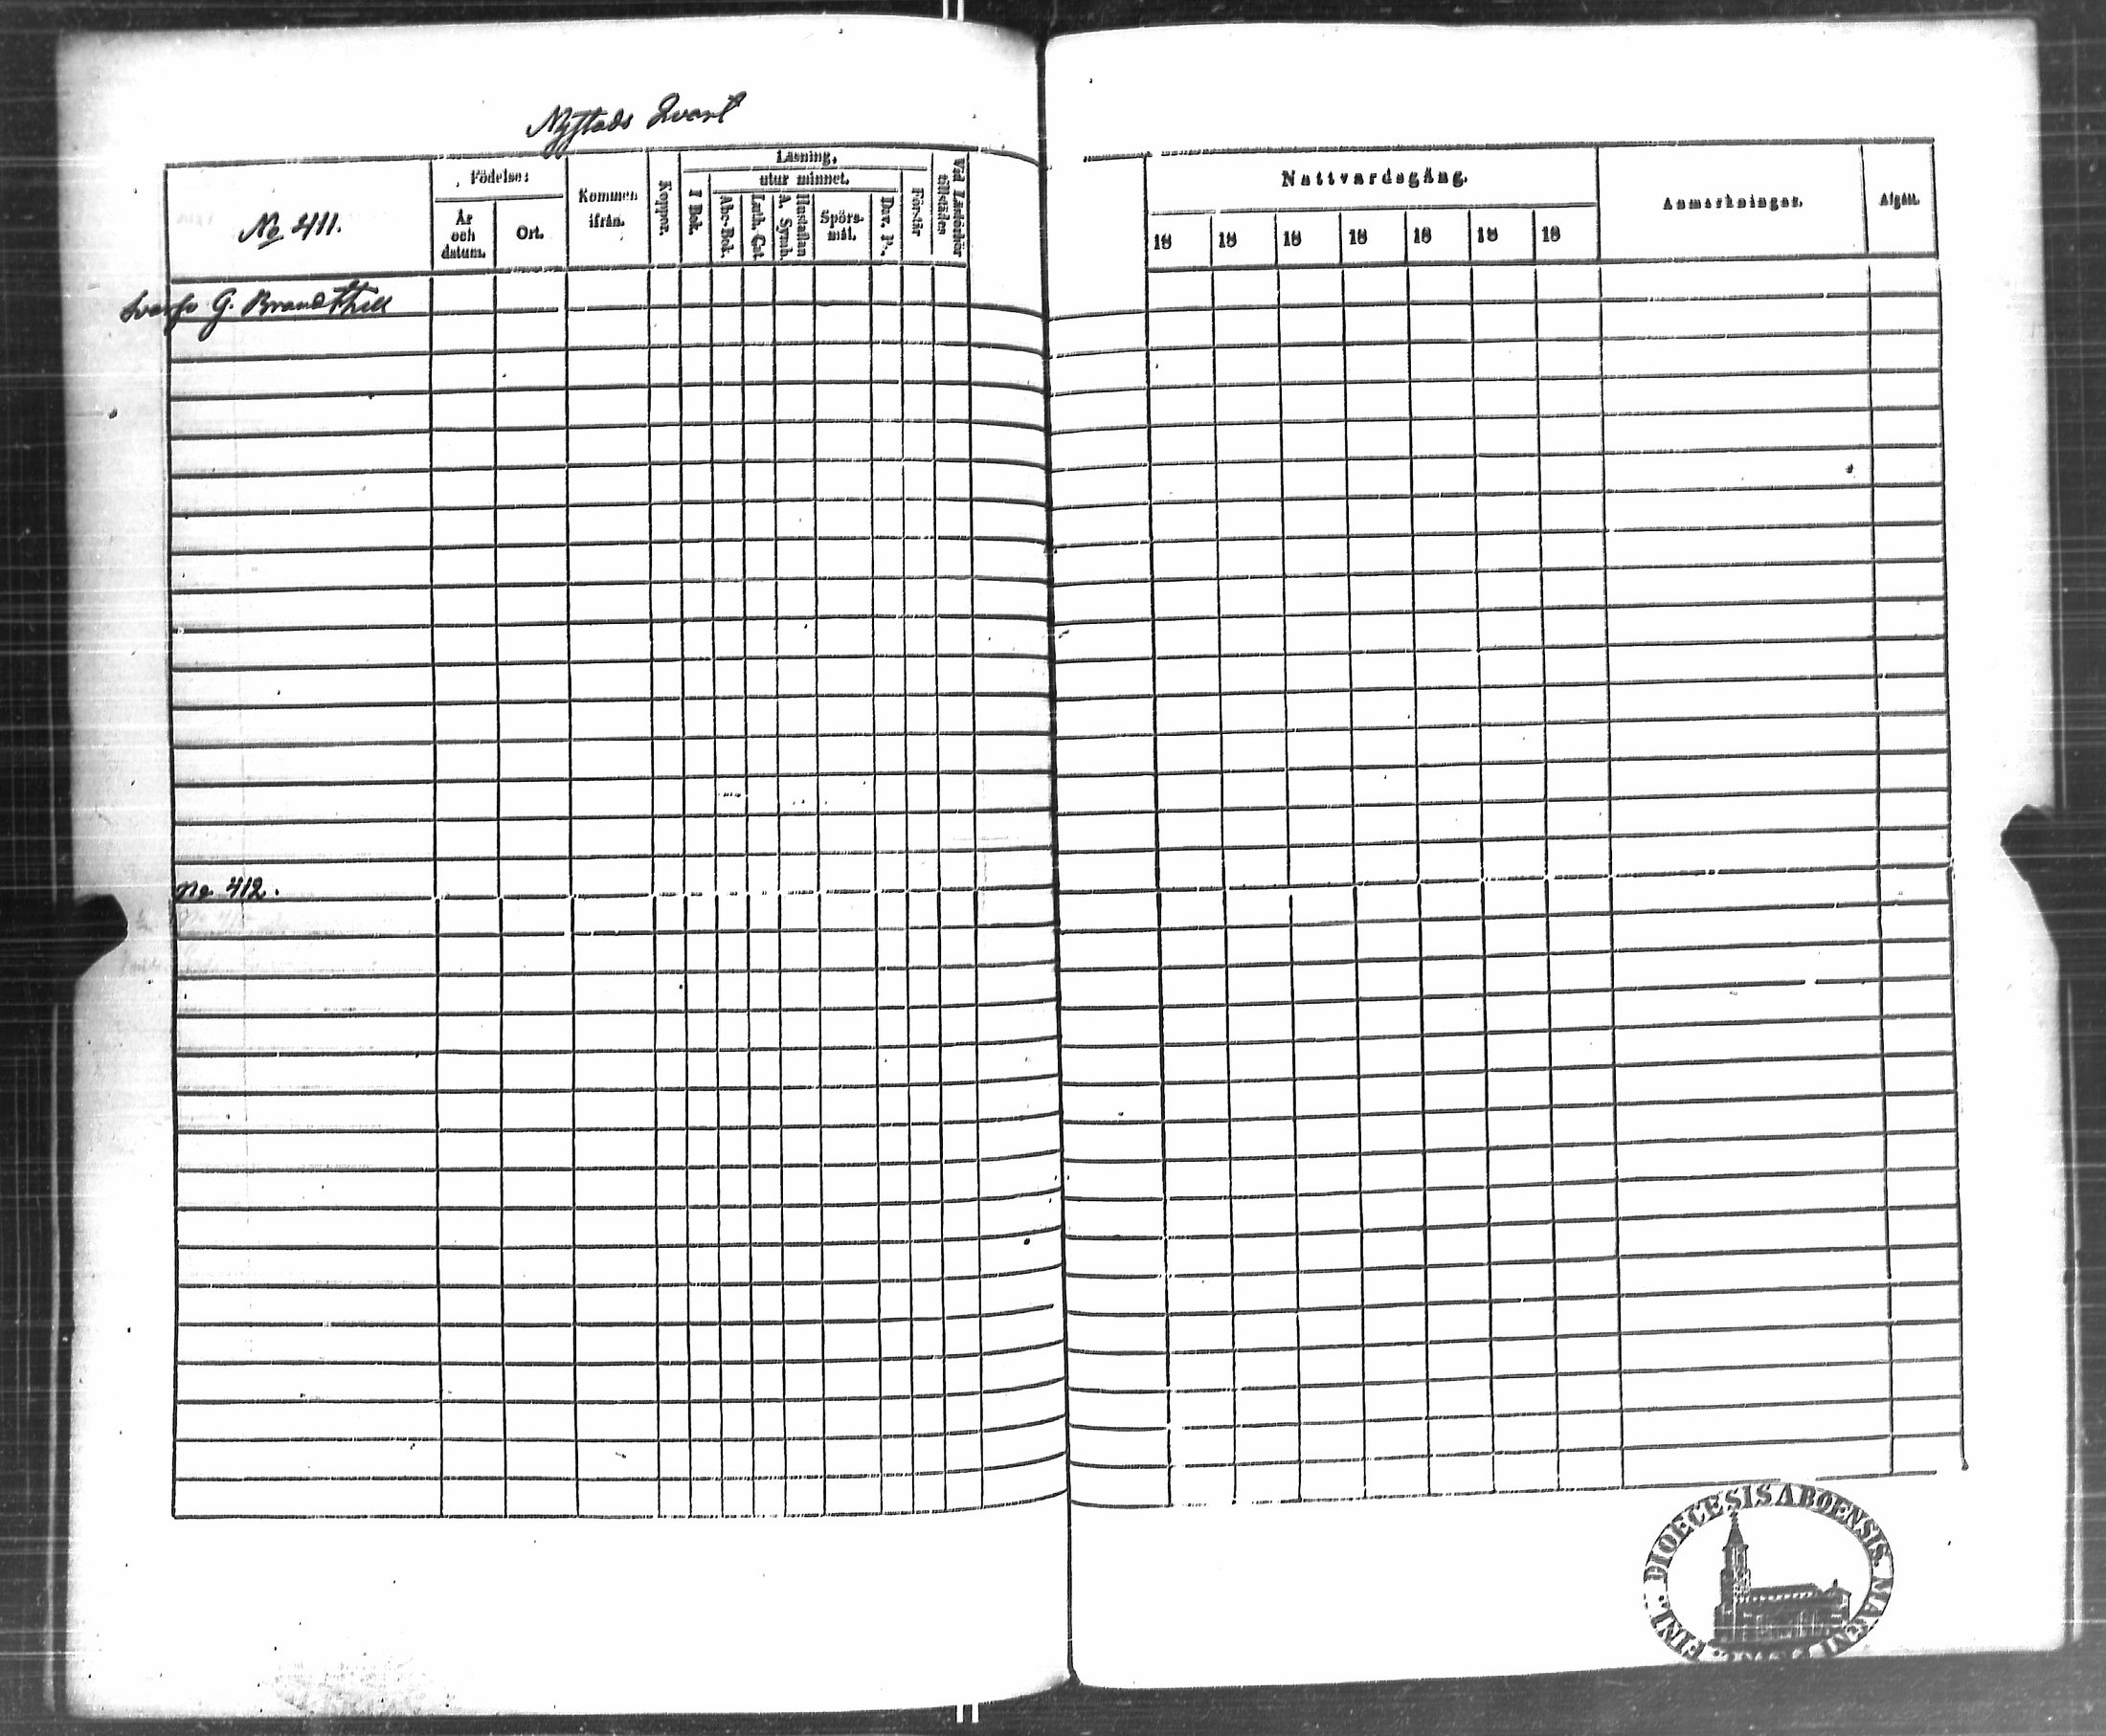 Nystads Qvart
No 411.
Födelse:
År och datum.
Ort.
Kommen ifrån.
Koppor.
Läsning,
I Bok.
utur minnet.
Abc-Bok.
Luth. Cat.
Hustaflan A. Symb.
Spörs-mål.
Dav. Ps.
Förstår
Vid Läseförhör tillstädes
Nattvardsgång.
18 18 18 18 18 18 18
Anmärkningar.
Afgått.
G. Brandthill
No 412.
DIOECESIS ABOENSIS. MAGNI FINL.